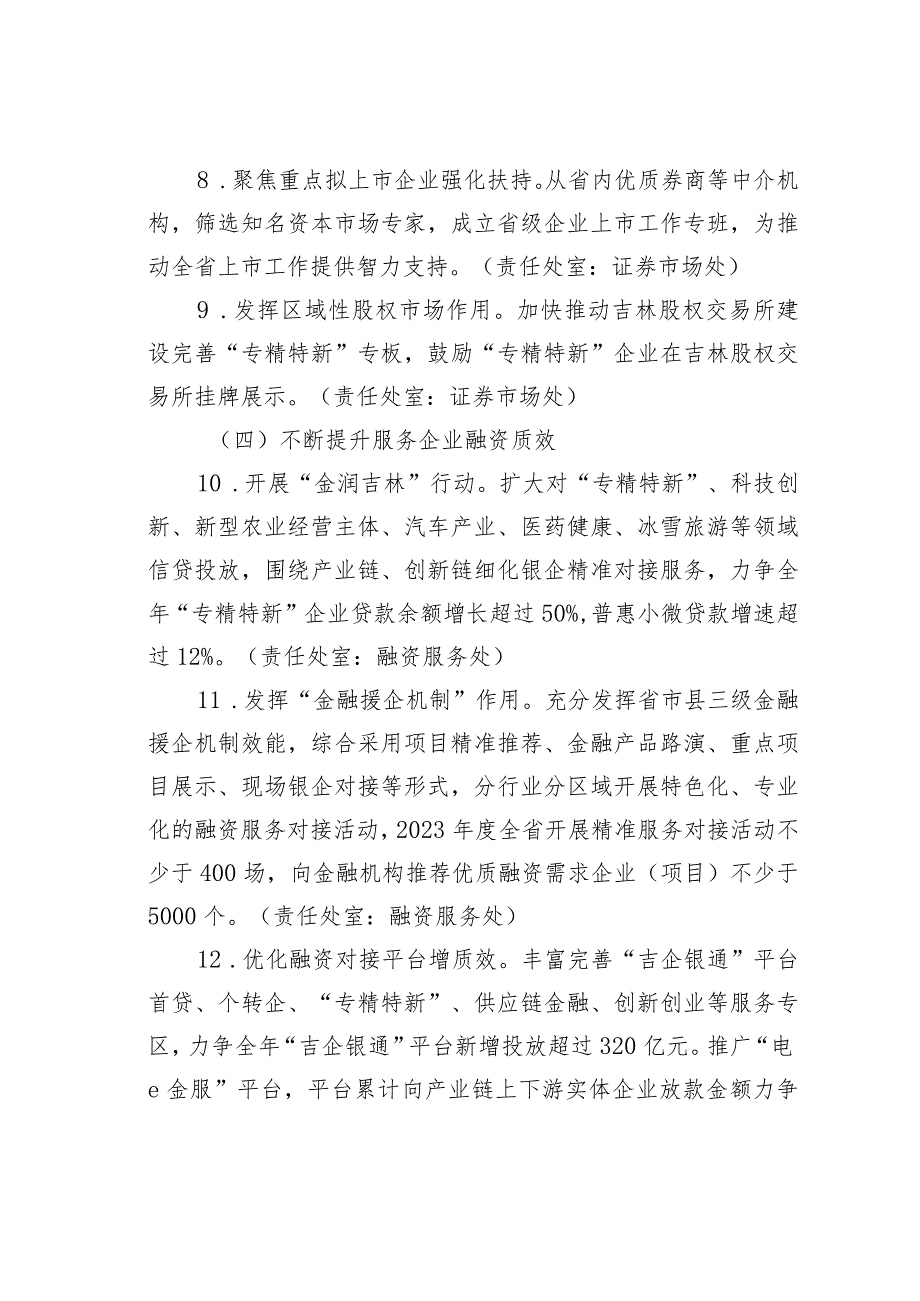 8 .聚焦重点拟上市企业强化扶持。从省内优质券商等中介机
构，筛选知名资本市场专家，成立省级企业上市工作专班，为推
动全省上市工作提供智力支持。（责任处室：证券市场处）
9 .发挥区域性股权市场作用。加快推动吉林股权交易所建
设完善“专精特新”专板，鼓励“专精特新”企业在吉林股权交
易所挂牌展示。（责任处室：证券市场处）
（四）不断提升服务企业融资质效
10 .开展“金润吉林”行动。扩大对“专精特新”、科技创
新、新型农业经营主体、汽车产业、医药健康、冰雪旅游等领域
信贷投放，围绕产业链、创新链细化银企精准对接服务，力争全
年“专精特新”企业贷款余额增长超过 50%,普惠小微贷款增速超
过 12%。（责任处室：融资服务处）
11 .发挥“金融援企机制”作用。充分发挥省市县三级金融
援企机制效能，综合采用项目精准推荐、金融产品路演、重点项
目展示、现场银企对接等形式，分行业分区域开展特色化、专业
化的融资服务对接活动，2023 年度全省开展精准服务对接活动不
少于 400 场，向金融机构推荐优质融资需求企业（项目）不少于
5000 个。（责任处室：融资服务处）
12 .优化融资对接平台增质效。丰富完善“吉企银通”平台
首贷、个转企、“专精特新”、供应链金融、创新创业等服务专
区，力争全年“吉企银通”平台新增投放超过 320 亿元。推广“电
e 金服”平台，平台累计向产业链上下游实体企业放款金额力争